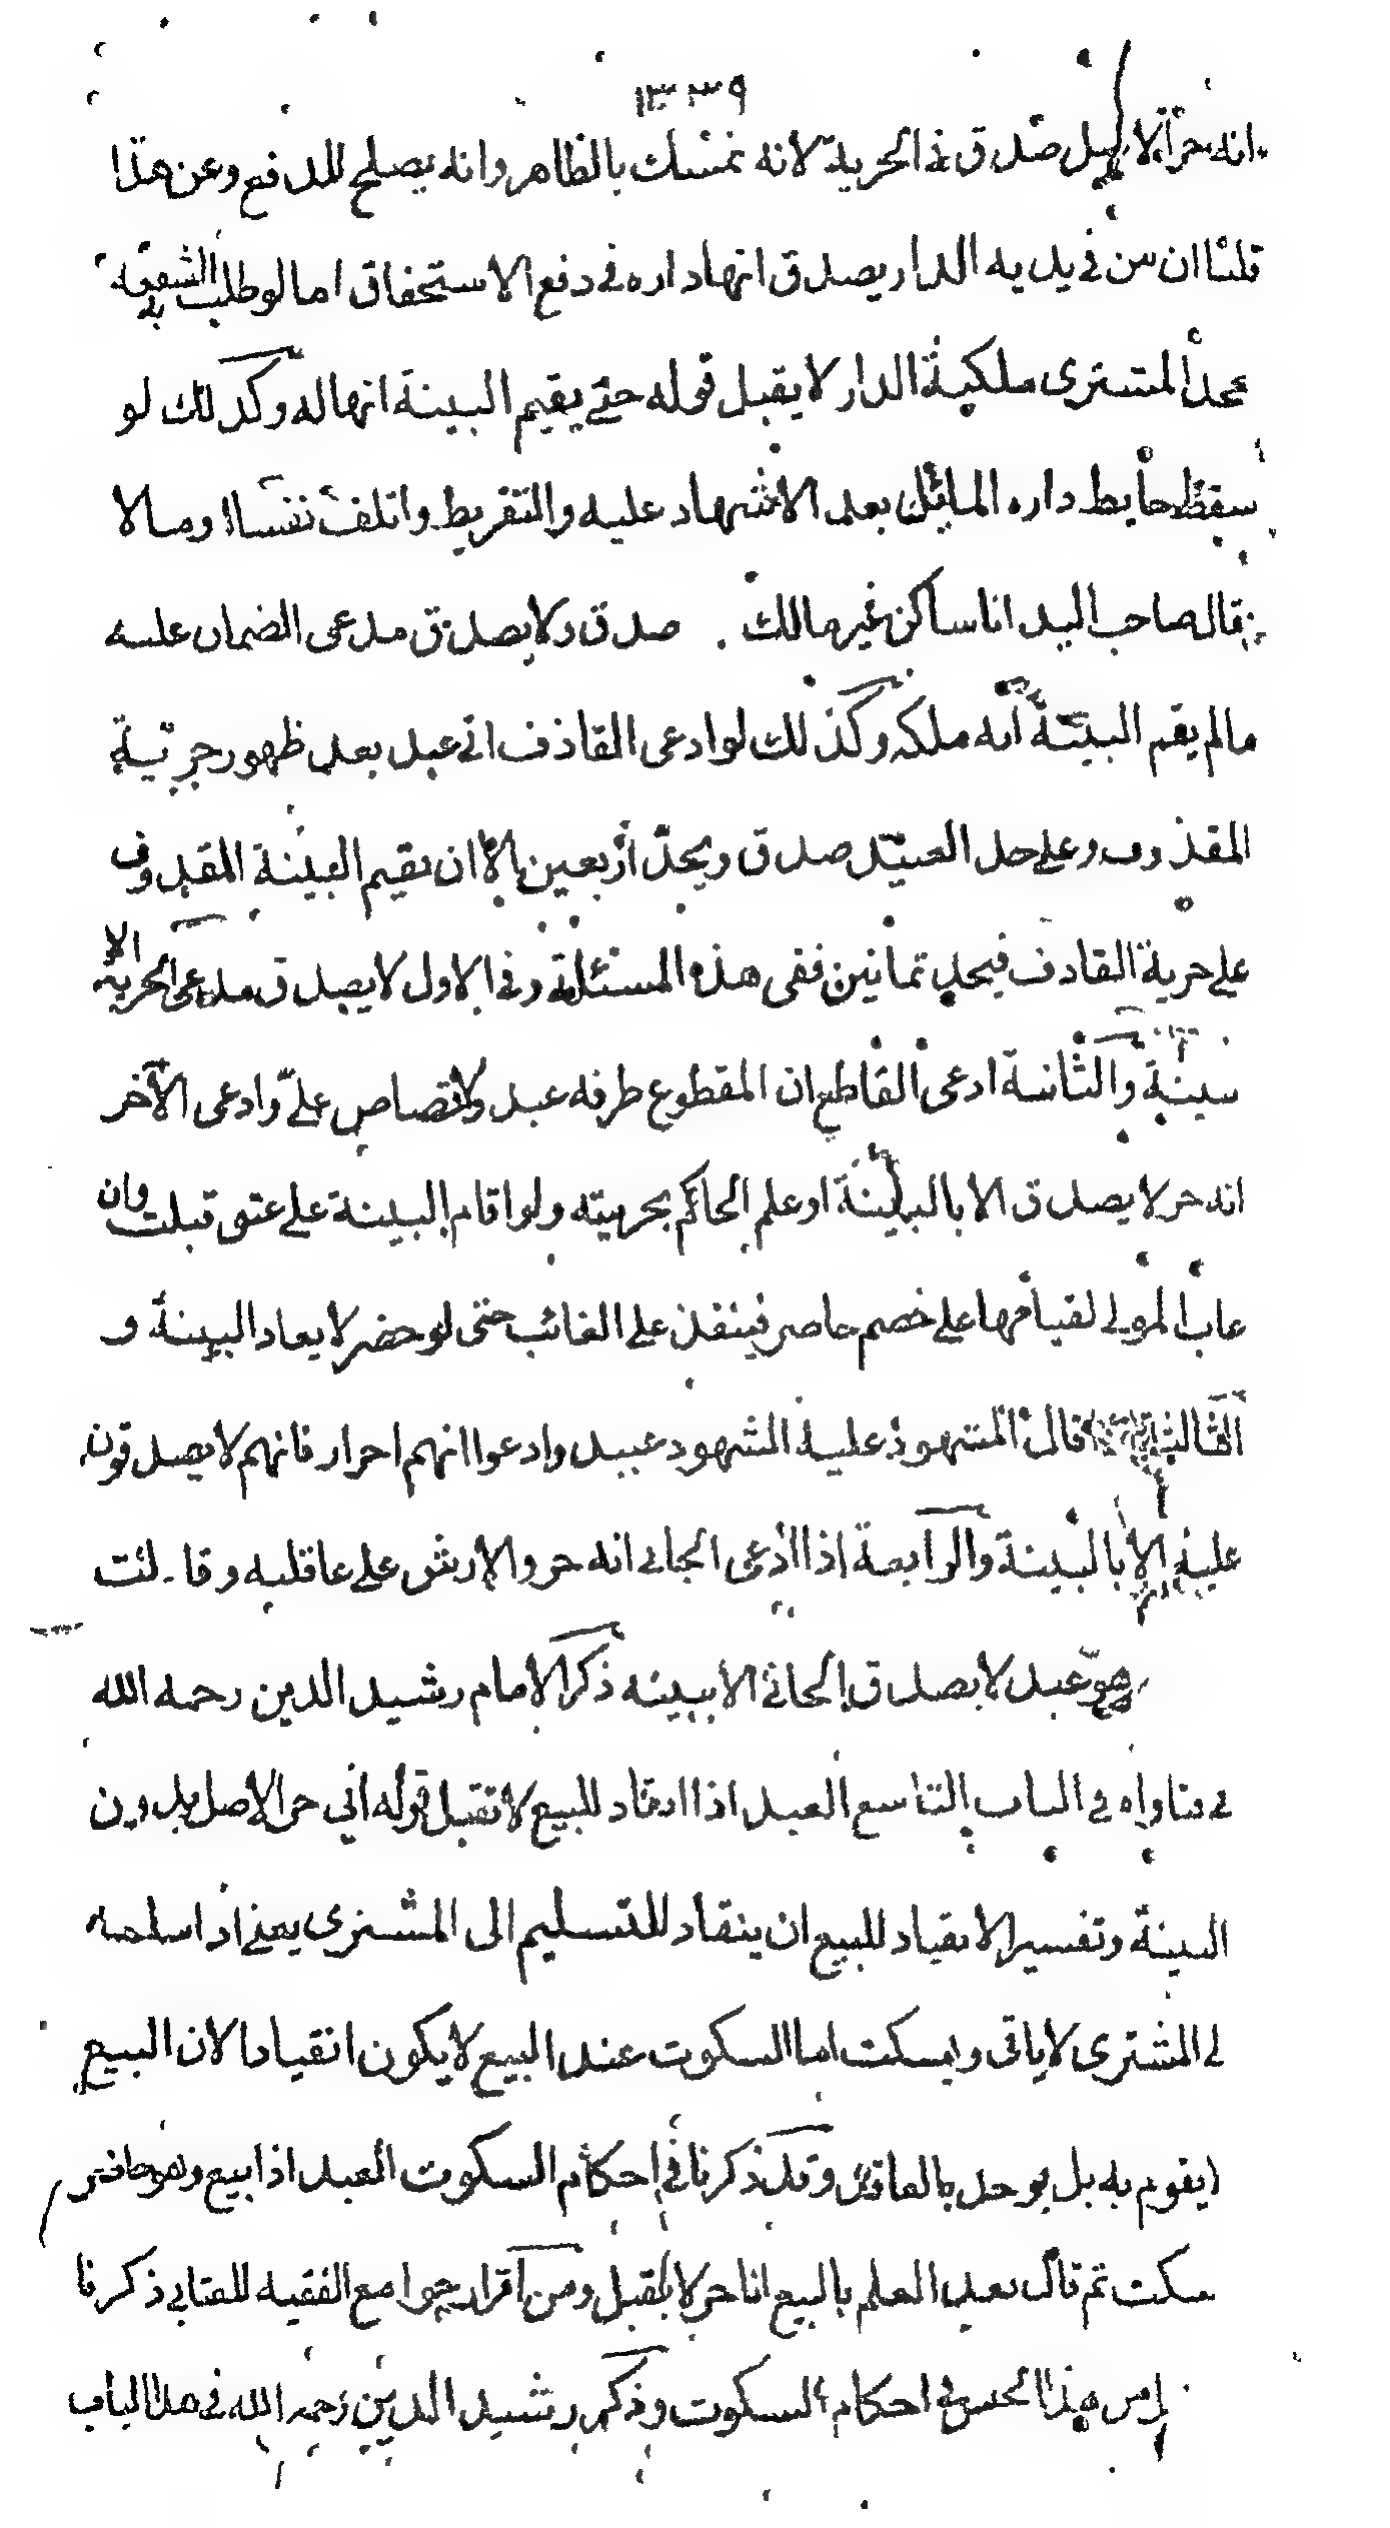 ١٣٣٩
انه حر الاصل صدق في الحرية لانه تمسك بالظاهر وانه يصلح للدفع وعن هذا
قلنا ان من في يديه الدار يصدق انها داره في دفع الاستحقاق اما لو طلب الشفعة به
محد المشترى ملكية الدار لا يقبل قوله حتى يقيم البينة انها له وكذلك لو
سقط حايط داره المايل بعد الاشهاد عليه والتفريط واتلف نفسا او مالا
فقال صاحب اليد انا ساكن غير مالك صدق ولا يصدق مدعى الضمان عليه
مالم يقم البينة انه ملكه وكذلك لو ادعى القاذف انى عبد بعد ظهور حرية
المقذوف وعلى حد العبد صدق ويحد اربعين الا ان يقيم البينة المقذوف
على حرية القاذف فيحد ثمانين ففى هذه المسئلة وفي الاول لا يصدق مدعى الحرية الا
ببينة والثانية ادعى القاطع ان المقطوع طرفه عبد ولا قصاص علي وادعى الآخر
انه حر لا يصدق الا بالبينة او علم الحاكم بحريته ولو اقام البينة على عتق قبلت وان
غاب المولى لقيامها على خصم حاضر فينفذ على الغائب حتى لو حضر لا يعاد البينة و
الثالثة قال المشهود عليه الشهود عبيد وادعوا انهم احرار فانهم لا يصدقون
عليه الا بالبينة والرابعة اذا ادعى الجانى انه حر والارش على عاقلته وقالت
هو عبد لا يصدق الجانى الا ببينة ذكر الامام رشيد الدين رحمه الله
في فتاواه في الباب التاسع العبد اذا انقاد للبيع لا تقبل قوله انى حر الاصل بدون
البينة وتفسير الانقياد للبيع ان ينقاد للتسليم الى المشترى يعنى اذا سلمه
الى المشترى لا يابى ويسكت اما السكوت عند البيع لا يكون انقيادا لان البيع
لا يقوم به بل يوجد بالعاقد وقد ذكرنا في احكام السكوت العبد اذا بيع وهو حاضر
سكت ثم قال بعد العلم بالبيع انا حر لا يقبل ومن اقرار جوامع الفقيه للعتابى ذكرنا
من هذا الجنس في احكام السكوت وذكر رشيد الدين رحمه الله في هذا الباب